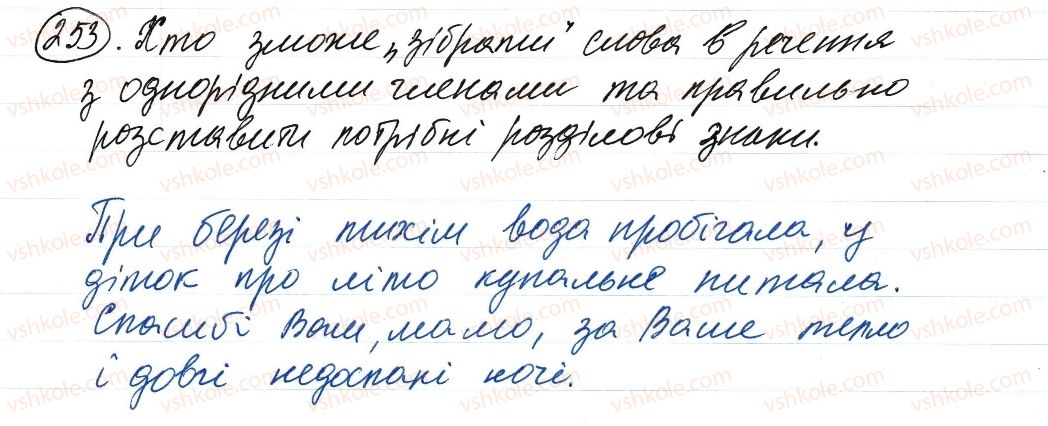 253. Хто зможе „зібрати" слова в речення
з однорідними членами та правильно
розставити потрібні розділові знаки.
При березі тихім вода пробігала, у
діток про літо купальне питала.
Спасибі Вам, мамо, за Ваше тепло
і довгі недоспані ночі.